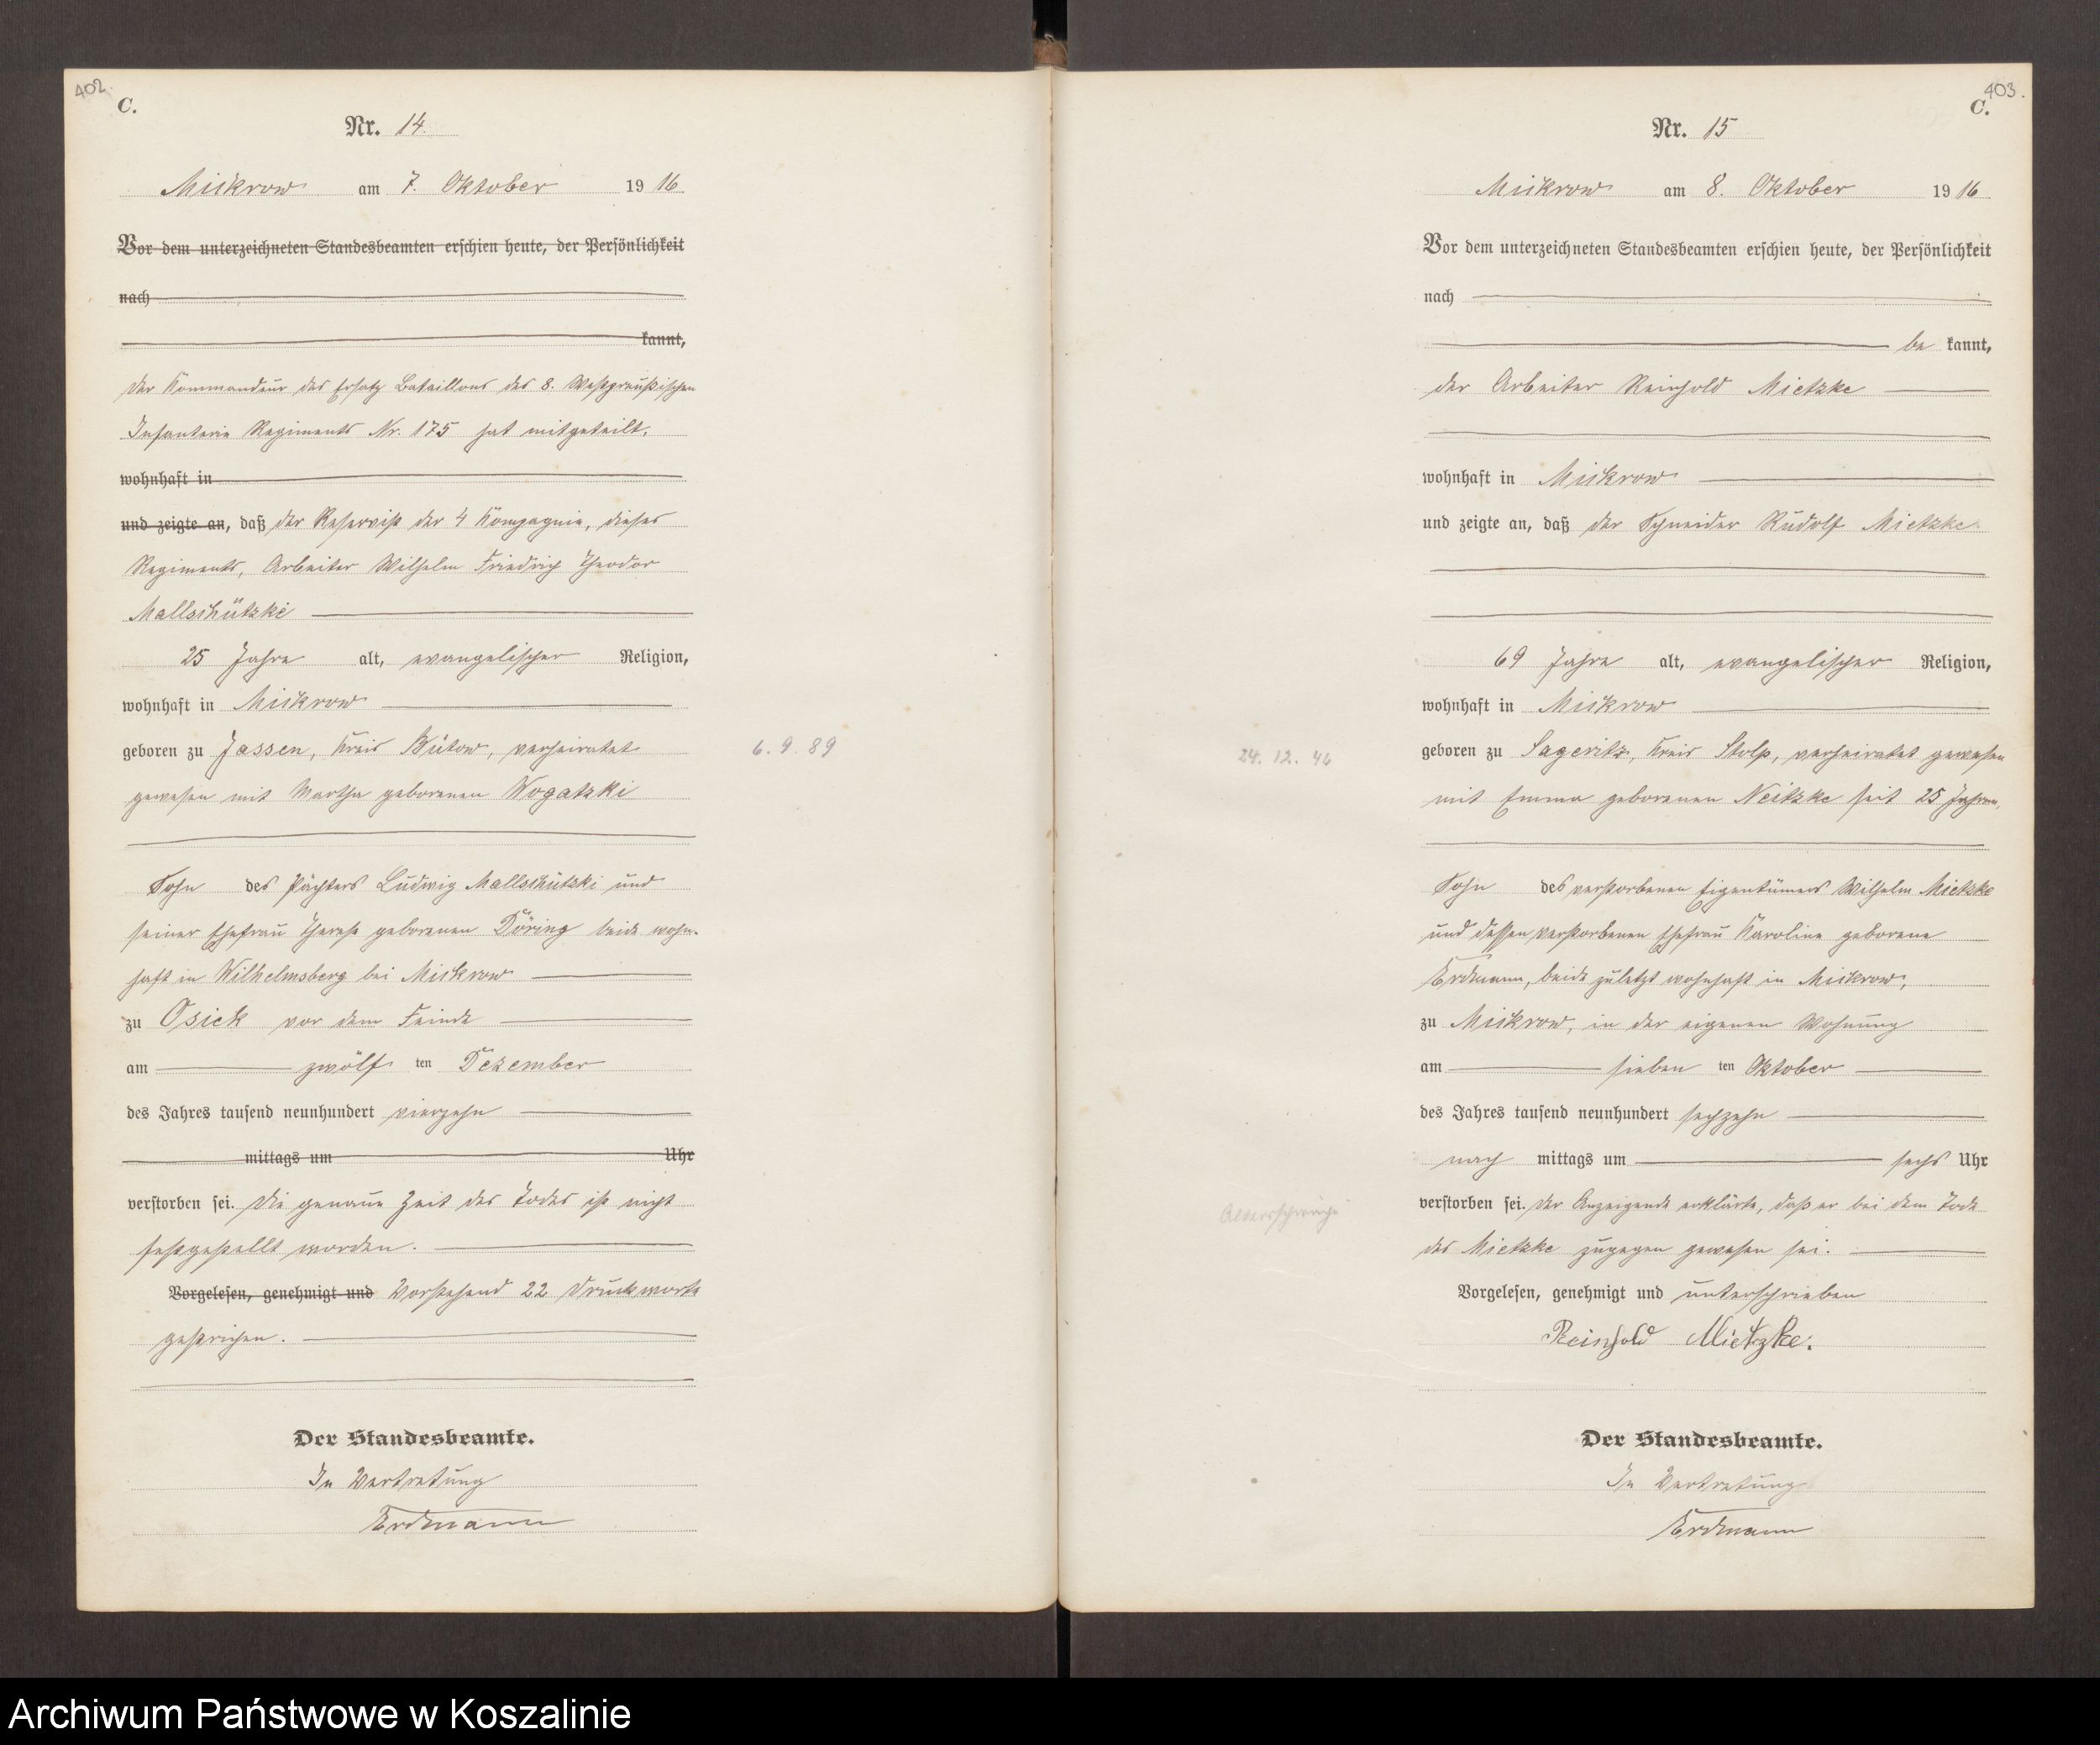 402.
C.
Nr. 14.
Mickrow am 7. Oktober 19 16
Vor dem unterzeichneten Standesbeamten erschien heute, der Persönlichkeit
nach
kannt,
der Kommandeur des Ersatz Bataillons des 8. Westpreußischen
Infanterie Regiments Nr. 175 hat mitgeteilt,
wohnhaft in
und zeigte an, daß der Reservist der 4 Kompagnie, dieses
Regiments, Arbeiter Wilhelm Friedrich Theodor
Mallschützki
25 Jahre alt, evangelischer Religion,
wohnhaft in Mickrow
geboren zu Jassen, Kreis Bütow, verheiratet
6. 9. 89
gewesen mit Martha geborenen Wogatzki
Sohn des Pächters Ludwig Mallschützki und
seiner Ehefrau Therese geborenen Döring beide wohn-
haft in Wilhelmsberg bei Mickrow
zu Osiek vor dem Feinde
am zwölf ten Dezember
des Jahres tausend neunhundert vierzehn
mittags um Uhr
verstorben sei. Die genaue Zeit des Todes ist nicht
festgestellt worden.
Vorgelesen, genehmigt und Vorstehend 22 Druckworte
gestrichen.
Der Standesbeamte.
In Vertretung
Erdmann
403.
C.
Nr. 15
Mickrow am 8. Oktober 19 16
Vor dem unterzeichneten Standesbeamten erschien heute, der Persönlichkeit
nach
be kannt,
der Arbeiter Reinhold Mietzke
wohnhaft in Mickrow
und zeigte an, daß der Schneider Rudolf Mietzke
69 Jahre alt, evangelischer Religion,
wohnhaft in Mickrow
24. 12. 46
geboren zu Sageritz, Kreis Stolp, verheiratet gewesen
mit Emma geborenen Neitzke seit 25 Jahren,
Sohn des verstorbenen Eigentümers Wilhelm Mietzke
und dessen verstorbenen Ehefrau Karoline geborene
Erdmann, beide zuletzt wohnhaft in Mickrow,
zu Mickrow, in der eigenen Wohnung
am sieben ten Oktober
des Jahres tausend neunhundert sechzehn
nach mittags um sechs Uhr
Altersschwäche
verstorben sei. Der Anzeigende erklärte, daß er bei dem Tode
des Mietzke zugegen gewesen sei.
Vorgelesen, genehmigt und unterschrieben
Reinhold Mietzke.
Der Standesbeamte.
In Vertretung
Erdmann
Archiwum Państwowe w Koszalinie